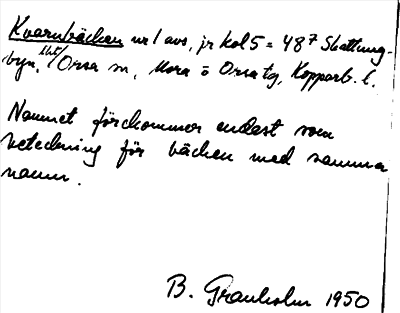 Kvarnbäcken nr 1 avs, jr kol 5 = 48⁷ Skattung-
byn, Orsa sn, Mora o Orsa tg, Kopparb. l.
Namnet förekommer endast som
beteckning för bäcken med samma
namn.
B. Granholm 1950